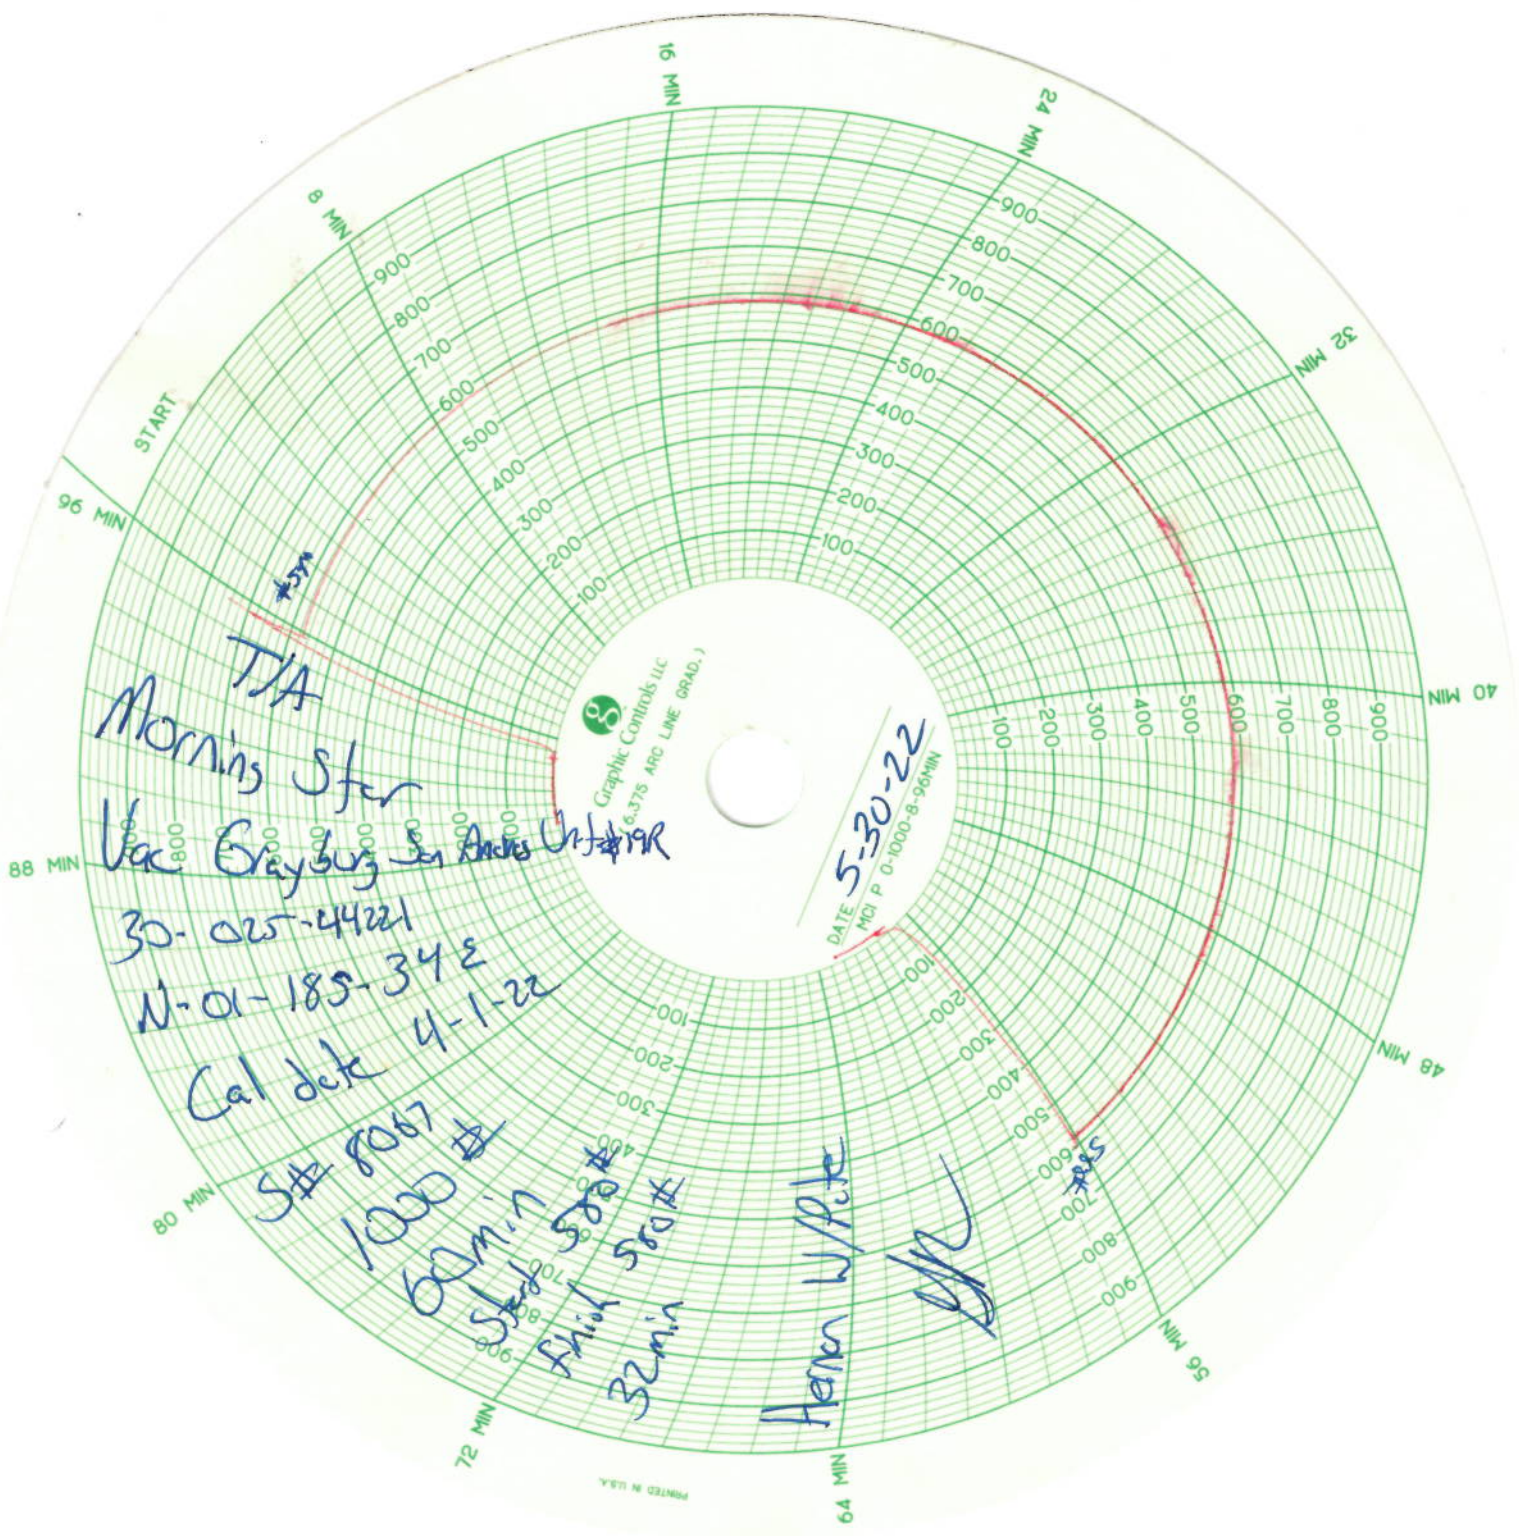 16 MIN
24 MIN
32 MIN
40 MIN
48 MIN
56 MIN
64 MIN
72 MIN
80 MIN
88 MIN
96 MIN
START
8 MIN
900
800
700
600
500
400
300
200
100
900
800
700
600
500
400
300
200
100
100 200 300 400 500 600 700 800 900
100
200
300
400
500
600
700
800
900
100
200
300
400
700
800
900
Graphic Controls LLC
6.375 ARC LINE GRAD.)
DATE 5-30-22
MCI P 0-1000-8-96MIN
T/A
Morning Star
Vac Grayburg San Andres Unit #19R
30-025-44221
N-01-18S-34E
Cal date 4-1-22
S# 8067
1000 #
60min
Start 580#
finish 580#
32min
PRINTED IN U.S.A.